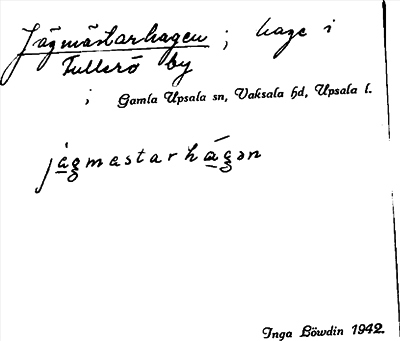 Jägmästarhagen ; hage i
Fullerö by
; Gamla Upsala sn, Vaksala hd, Upsala l.
jägmastarhagən
Inga Löwdin 1942.